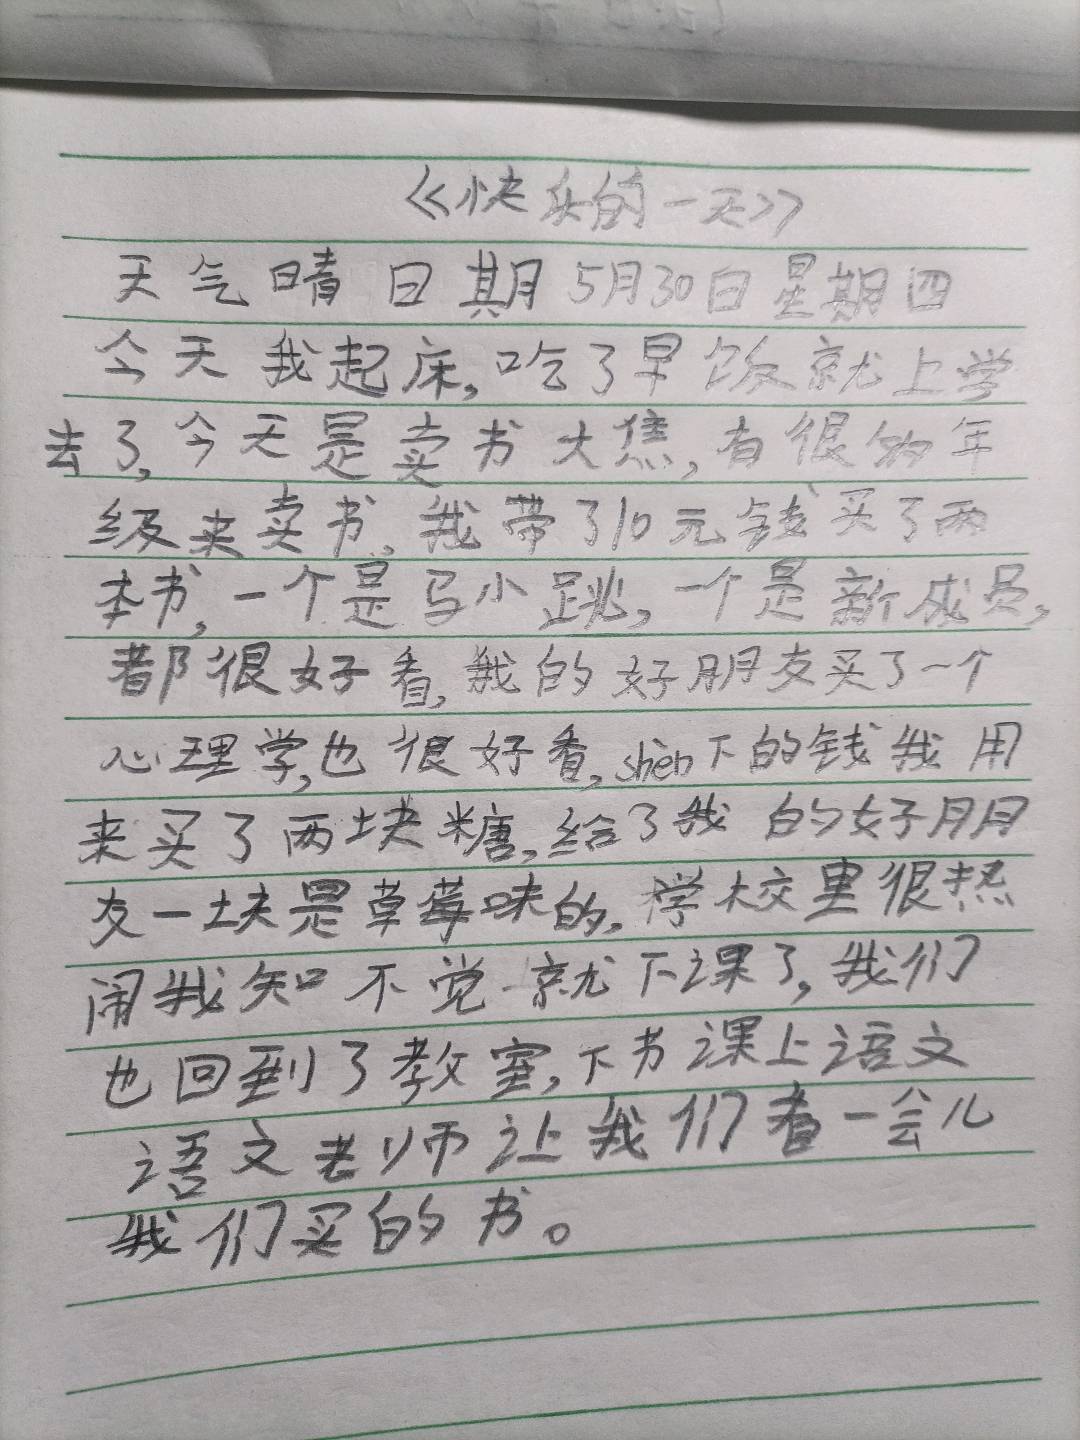 《快乐的一天》
天气晴 日期5月30日星期四
今天我起床,吃了早饭就上学
去了,今天是卖书大焦,有很多年
级来卖书,我带了10元钱买了两
本书,一个是马小跳,一个是新成员,
都很好看,我的好朋友买了一个
心理学,也很好看,shèn下的钱我用
来买了两块糖,给了我的好朋
友一块是草莓味的,学校里很热
闹我知不觉就下课了,我们
也回到了教室,下书课上语文
语文老师让我们看一会儿
我们买的书。